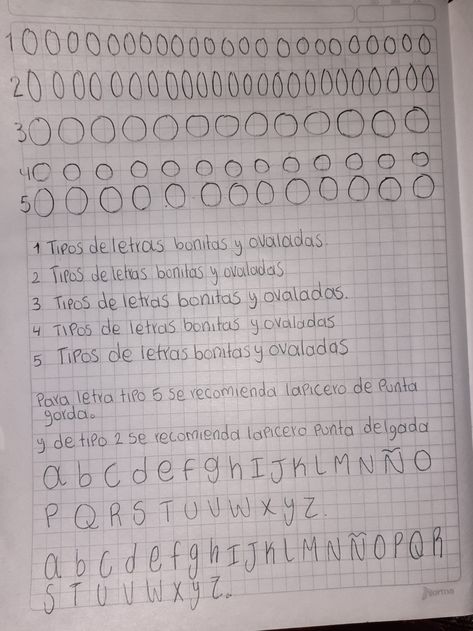 1
2
3
4
5
1 Tipos de letras bonitas y ovaladas.
2 Tipos de letras bonitas y ovaladas
3 Tipos de letras bonitas y ovaladas.
4 Tipos de letras bonitas y ovaladas
5 Tipos de letras bonitas y ovaladas
Para letra tipo 5 se recomienda lapicero de punta
gorda.
y de tipo 2 se recomienda lapicero punta delgada
a b c d e f g h I J K L M N Ñ O
P Q R S T U V W X y Z.
a b c d e f g h I J K L M N Ñ O P Q R
S T U V W X y Z.
norma